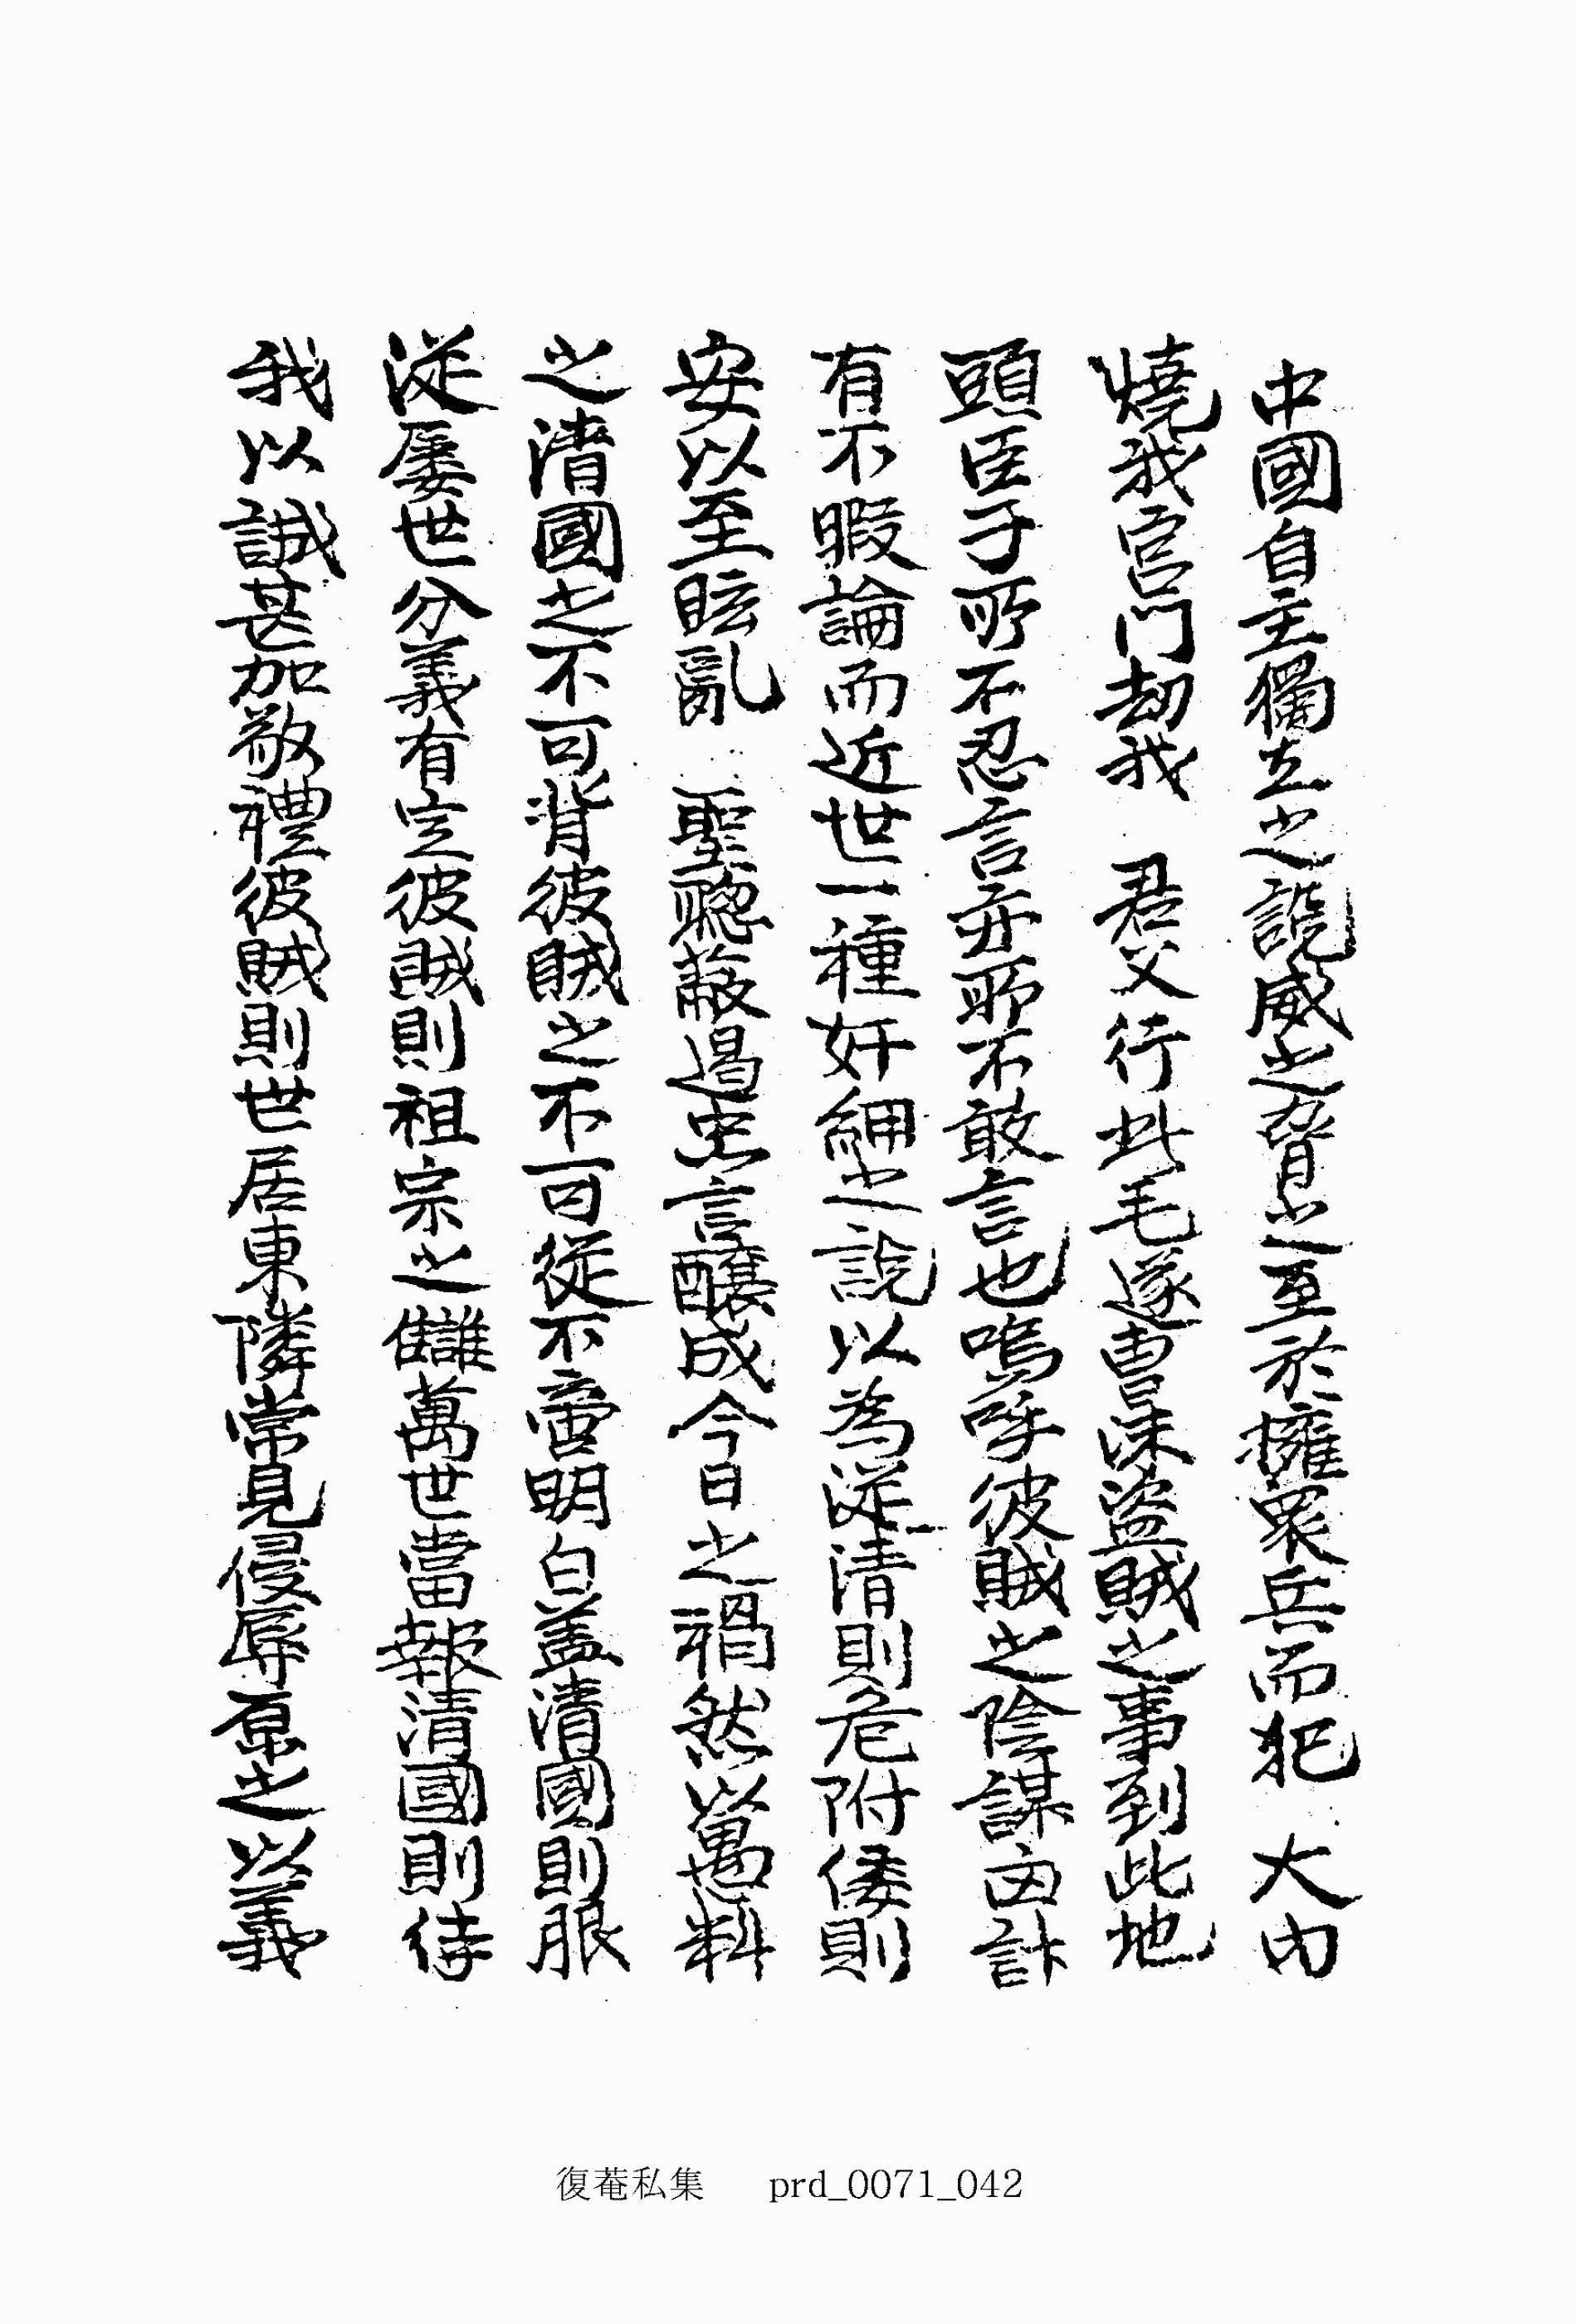 中國自主獨立之說威之脅之至於擁衆兵而犯 大內
燒我宮門劫我 君父行此毛遂曹沬盜賊之事到此地
頭臣子所不忍言亦所不敢言也嗚呼彼賊之陰謀凶計
有不暇論而近世一種奸細之說以為從清則危附倭則
安以至眩亂 聖聰蔽遏忠言釀成今日之禍然以萬料
之清國之不可背彼賊之不可從不啻明白盖清國則服
從屢世分義有定彼賊則祖宗之讎萬世當報清國則待
我以誠甚加敬禮彼賊則世居東隣常見侵辱原之以義
復菴私集 prd_0071_042